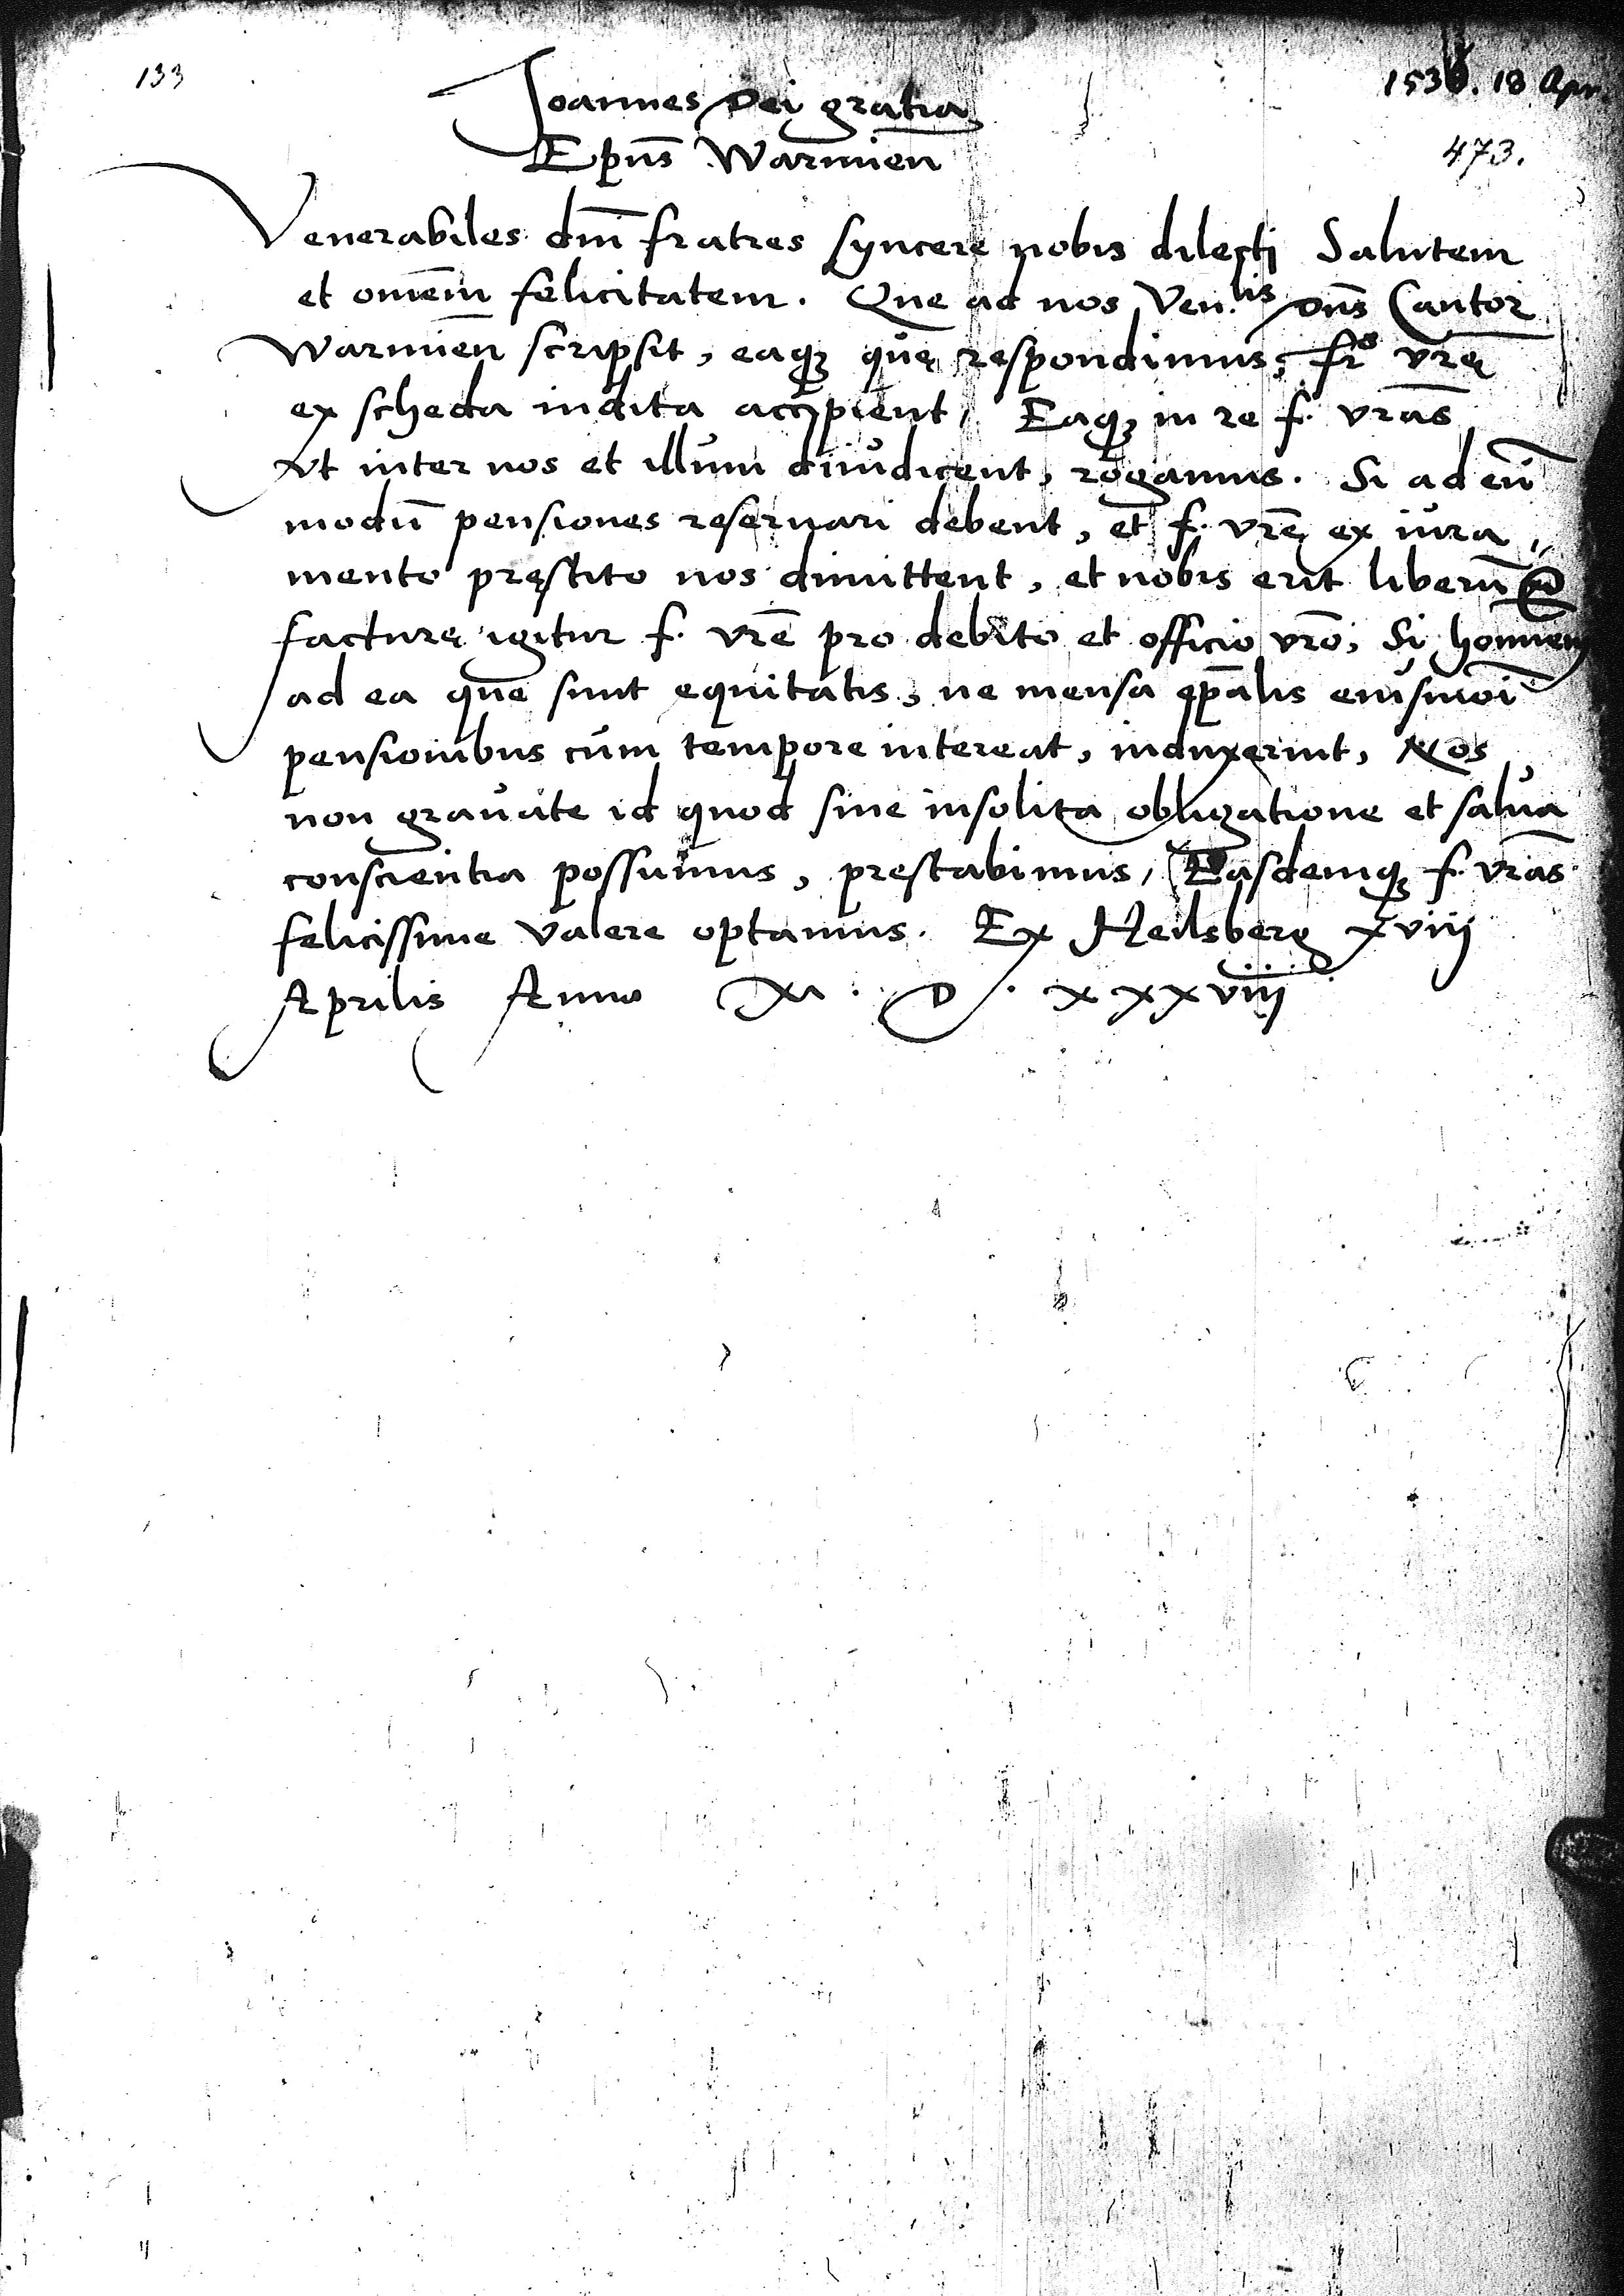 133
1538. 18 Apr.
473.
Joannes Dei gratia
Epūs Warmien̄
Venerabiles dn̄i fratres syncere nobis dilecti Salutem
et om̄em felicitatem. Que ad nos Ven.lis dn̄s Cantor
Warmien̄ scripsit, eaqꝫ quę respondimus, fr̄s vr̄ę
ex scheda indita accipient, Eaqꝫ in re f. vr̄as
Vt inter nos et illum diiudicent, rogamus. Si ad eū
modū pensiones reseruari debent, et f. vr̄ę ex iura,,
mento pręstito nos dimittent, et nobis erit liberū
facturę igitur f. vr̄e pro debito et officio vr̄o, Si hominem
ad ea que sunt equitatis, ne mensa ep̄alis eiusmōi
pensionibus cum tempore intereat, induxerint, Nos
non grauate id quod sine insolita obligatione et salua
conscientia possumus, pręstabimus, Easdemqꝫ f. vr̄as
felicissime valere optamus. Ex Heilsberg xviij
Aprilis Anno M. D. xxxviij